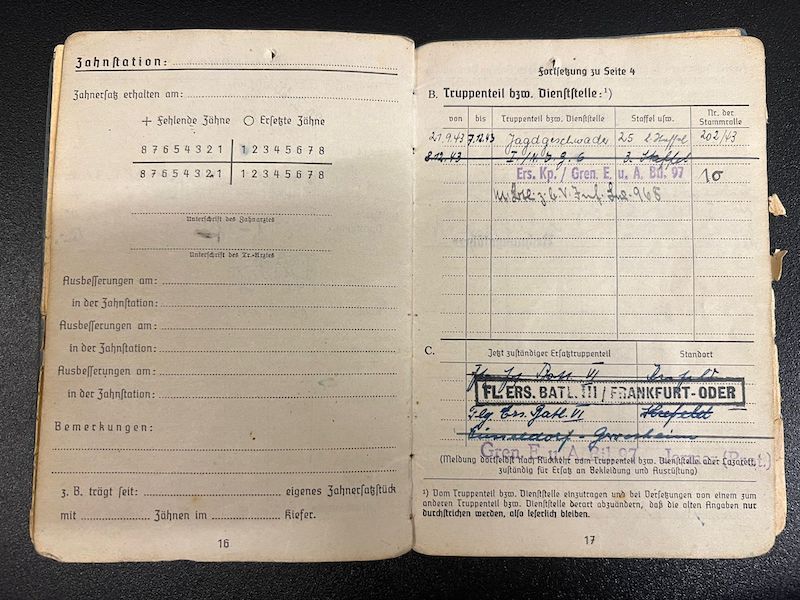 Zahnstation:
Zahnersatz erhalten am:
+ Fehlende Zähne O Ersetzte Zähne
8 7 6 5 4 3 2 1 1 2 3 4 5 6 7 8
8 7 6 5 4 3 2 1 1 2 3 4 5 6 7 8
Unterschrift des Zahnarztes
Unterschrift des Tr.-Arztes
Ausbesserungen am:
in der Zahnstation:
Ausbesserungen am:
in der Zahnstation:
Ausbesserungen am:
in der Zahnstation:
Bemerkungen:
z. B. trägt seit: eigenes Zahnersatzstück
mit Zähnen im Kiefer.
16
Fortsetzung zu Seite 4
B. Truppenteil bzw. Dienststelle:¹)
von bis Truppenteil bzw. Dienststelle Staffel usw. Nr. der Stammrolle
21.9.43 7.12.43 Jagdgeschwader 25 202/43
8.12.43 3. Staffel
Ers. Kp. / Gren. E. u. A. Btl. 97 10
968
C. Jetzt zuständiger Ersatztruppenteil Standort
VI
FL. ERS. BATL. III / FRANKFURT-ODER
Flg. Ers. Batl. VI Krefeld
Gren. E. u. A. Btl. 97
(Meldung daselbst nach Rückkehr vom Truppenteil bzw. Dienststelle oder Lazarett,
zuständig für Ersatz an Bekleidung und Ausrüstung)
¹) Vom Truppenteil bzw. Dienststelle einzutragen und bei Versetzungen von einem zum
anderen Truppenteil bzw. Dienststelle derart abzuändern, daß die alten Angaben nur
durchstrichen werden, also leserlich bleiben.
17